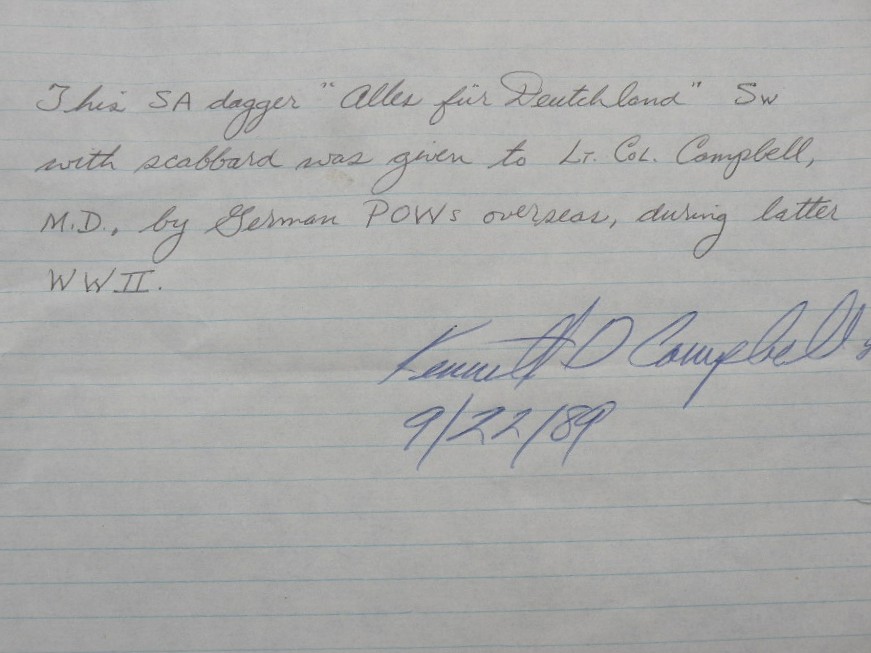 This SA dagger "Alles für Deutchland" Sw
with scabbard was given to Lt. Col. Campbell,
M.D., by German POWs overseas, during latter
WWII.
Kenneth D Campbell
9/22/89